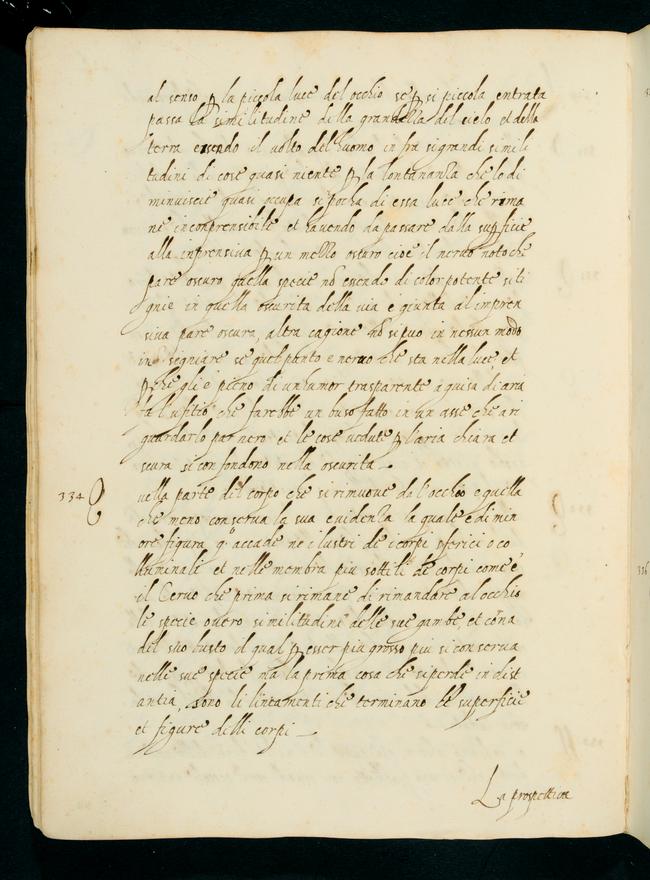 al senso p la piccola luce del occhio se p si piccola entrata
passa la similitudine della grandezza del cielo et della
terra essendo il volto del huomo in fra si grandi simili
tudini di cose quasi niente p la lontananza che lo di
minuisce quasi occupa si pocha di essa luce che rima
ne inconprensibile et havendo da passare dalla supficie
alla inprensiva p un mezzo oscuro cioe il nervo voto che
pare oscuro quella specie nō essendo di color potente si ti
gnie in quella oscurita della via e giunta al impren
siva pare oscura, altra cagione nō si puo in nessun modo
in segniare se quel punto e nervo che sta nella luce et
p che gli e pieno di un humor trasparente a guisa di aria
fa l'ufitio che farebbe un buso fatto in un asse che a ri
guardarlo par nero et le cose vedute p l'aria chiara et
scura si confondono nella oscurita
334 Q
uella parte del corpo che si rimuove da l'occhio e quella
che meno conserva la sua evidenza la quale e di min
ore figura q.o accade ne i lustri de i corpi sferici o co
llunnali et nelle menbra piu sottili de corpi come e
il Cervo che prima si rimane di rimandare al occhio
le specie overo similitudini delle sue gambe, et corna
del suo busto il qual p esser piu grosso piu si conserva
nelle sue specie ma la prima cosa che si perde in dist
antia, sono li lineamenti che terminano le superficie
et figure delli corpi
La prospettiva